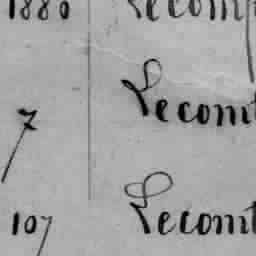 1880 Lecomp
7 Lecomt
107 Lecomt